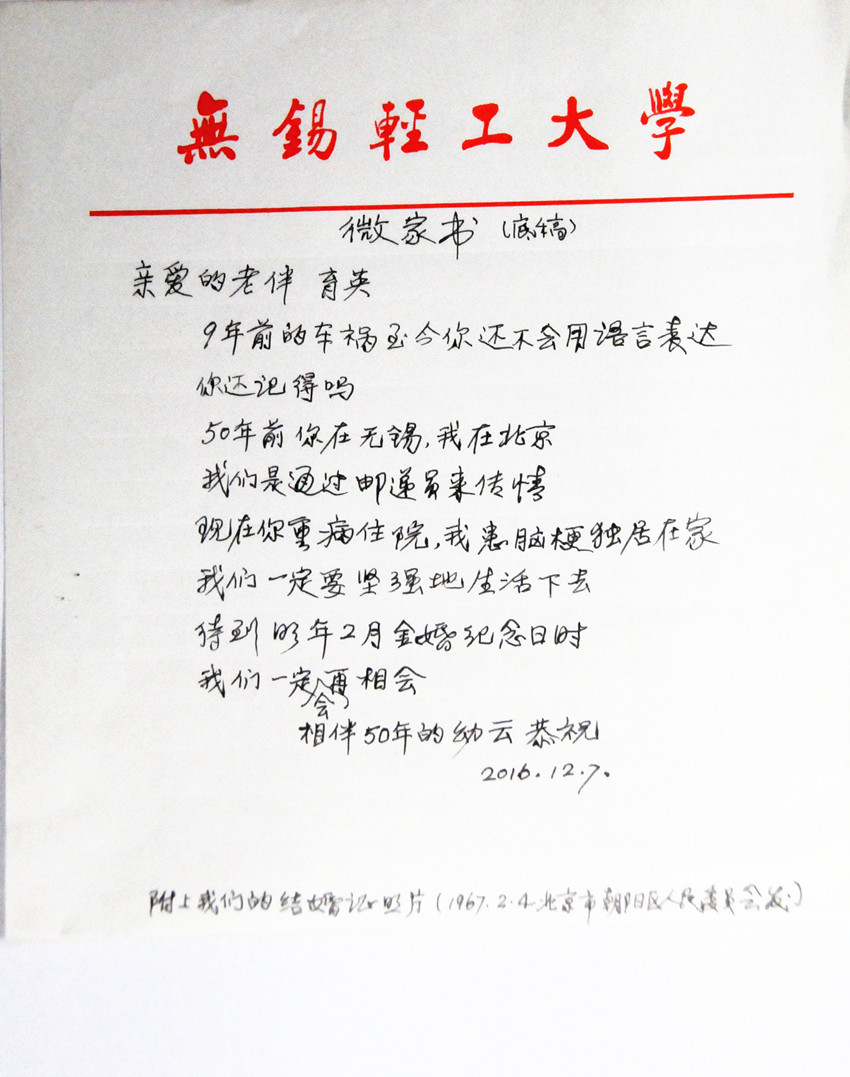 無錫輕工大學
微家书（底稿）
亲爱的老伴 育英
9年前的车祸至今你还不会用语言表达
你还记得吗
50年前你在无锡,我在北京
我们是通过邮递员来传情
现在你重病住院,我患脑梗独居在家
我们一定要坚强地生活下去
待到明年2月金婚纪念日时
我们一定会再相会
相伴50年的幼云 恭祝
2016.12.7.
附上我们的结婚证照片(1967.2.4北京市朝阳区人民委员会发)